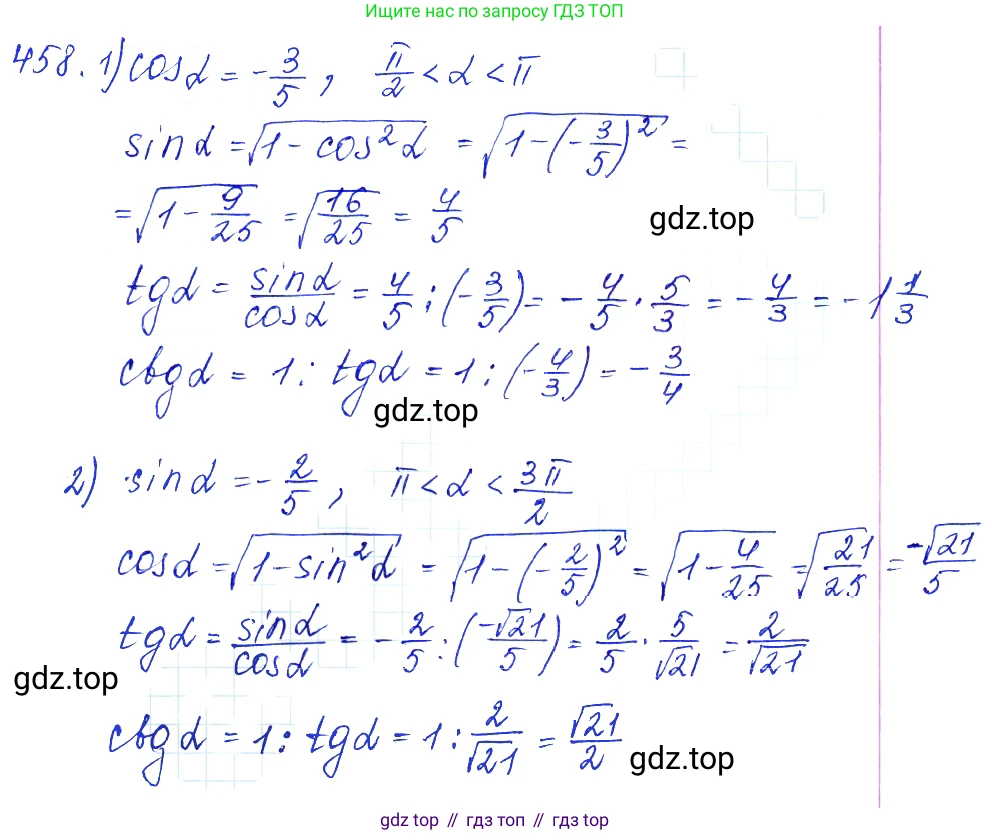 Ищите нас по запросу ГДЗ ТОП
458. 1) cos α = -3/5, π/2 < α < π
sin α = √(1 - cos²α) = √(1 - (-3/5)²) =
= √(1 - 9/25) = √(16/25) = 4/5
gdz.top
tg α = sin α/cos α = 4/5 : (-3/5) = -4/5 · 5/3 = -4/3 = -1 1/3
ctg α = 1 : tg α = 1 : (-4/3) = -3/4
gdz.top
2) sin α = -2/5, π < α < 3π/2
cos α = √(1 - sin²α) = √(1 - (-2/5)²) = √(1 - 4/25) = √(21/25) = -√21/5
tg α = sin α/cos α = -2/5 : (-√21/5) = 2/5 · 5/√21 = 2/√21
gdz.top
ctg α = 1 : tg α = 1 : 2/√21 = √21/2
gdz.top
gdz top // гдз топ // гдз top